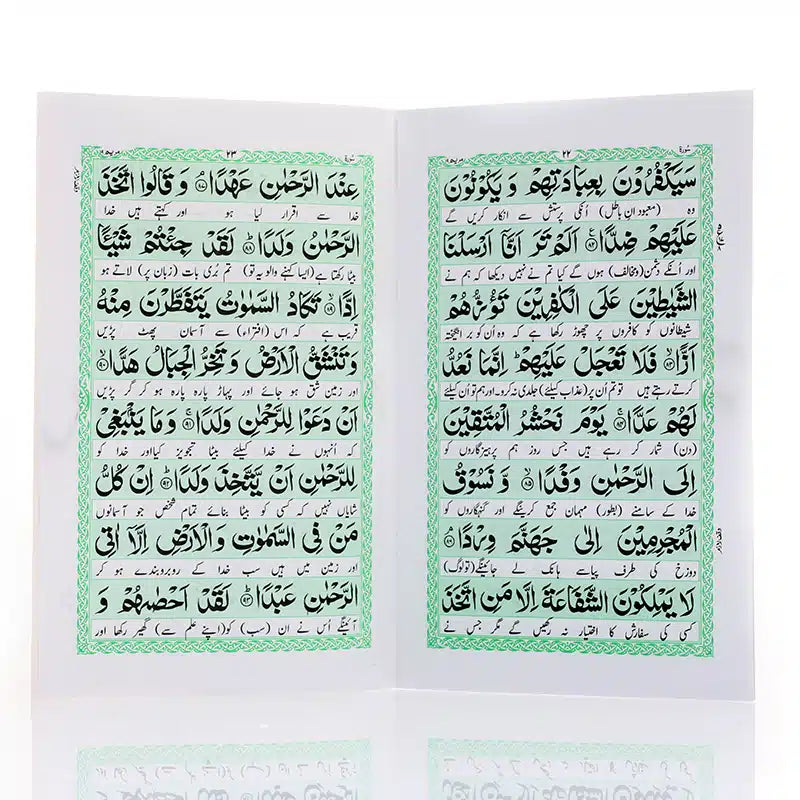 سُورۃ ٢٢ مریم
سَيَكْفُرُوْنَ بِعِبَادَتِهِمْ وَ يَكُوْنُوْنَ
وہ (معبودانِ باطل) اُنکی پرستش سے انکار کریں گے
عَلَيْهِمْ ضِدًّا ۠ ٨٢ اَلَمْ تَرَ اَنَّاۤ اَرْسَلْنَا
اور اُنکے دشمن (ومخالف) ہوں گے کیا تم نے نہیں دیکھا کہ ہم نے
الشَّيٰطِيْنَ عَلَى الْكٰفِرِيْنَ تَؤُزُّهُمْ
شیطانوں کو کافروں پر چھوڑ رکھا ہے کہ وہ اُن کو بر انگیختہ
اَزًّا ۙ ٨٣ فَلَا تَعْجَلْ عَلَيْهِمْ ؕ اِنَّمَا نَعُدُّ
کرتے رہتے ہیں تو تم اُن پر (عذاب کیلئے) جلدی نہ کرو اور ہم تو اُن کیلئے
لَهُمْ عَدًّا ۚ ٨٤ يَوْمَ نَحْشُرُ الْمُتَّقِيْنَ
(دن) شمار کر رہے ہیں جس روز ہم پرہیزگاروں کو
اِلَى الرَّحْمٰنِ وَفْدًا ۙ ٨٥ وَّ نَسُوْقُ
خدا کے سامنے (بطور) مہمان جمع کرینگے اور گنہگاروں کو
الْمُجْرِمِيْنَ اِلٰى جَهَنَّمَ وِرْدًا ۘ ٨٦
دوزخ کی طرف پیاسے ہانک لے جائینگے (تو لوگ)
لَا يَمْلِكُوْنَ الشَّفَاعَةَ اِلَّا مَنِ اتَّخَذَ
کسی کی سفارش کا اختیار نہ رکھیں گے مگر جس نے
سُورۃ ٢٣ مریم
عِنْدَ الرَّحْمٰنِ عَهْدًا ۘ ٨٧ وَ قَالُوا اتَّخَذَ
خدا سے اقرار لیا ہو اور کہتے ہیں خدا
الرَّحْمٰنُ وَلَدًا ؕ ٨٨ لَقَدْ جِئْتُمْ شَيْئًا
بیٹا رکھتا ہے (ایسا کہنے والو یہ تو) تم بُری بات (زبان پر) لائے ہو
اِدًّا ۙ ٨٩ تَكَادُ السَّمٰوٰتُ يَتَفَطَّرْنَ مِنْهُ
قریب ہے کہ اس (افتراء) سے آسمان پھٹ پڑیں
وَ تَنْشَقُّ الْاَرْضُ وَ تَخِرُّ الْجِبَالُ هَدًّا ۙ ٩٠
اور زمین شق ہو جائے اور پہاڑ پارہ پارہ ہو کر گر پڑیں
اَنْ دَعَوْا لِلرَّحْمٰنِ وَلَدًا ۚ ٩١ وَ مَا يَنْۢبَغِيْ
کہ اُنہوں نے خدا کیلئے بیٹا تجویز کیا اور خدا کو
لِلرَّحْمٰنِ اَنْ يَّتَّخِذَ وَلَدًا ؕ ٩٢ اِنْ كُلُّ
شایاں نہیں کہ کسی کو بیٹا بنائے تمام شخص جو آسمانوں
مَنْ فِي السَّمٰوٰتِ وَ الْاَرْضِ اِلَّاۤ اٰتِي
اور زمین میں ہیں سب خدا کے روبرو بندے ہو کر
الرَّحْمٰنِ عَبْدًا ؕ ٩٣ لَقَدْ اَحْصٰىهُمْ وَ
آئینگے اُس نے ان (سب) کو (اپنے علم سے) گھیر رکھا اور